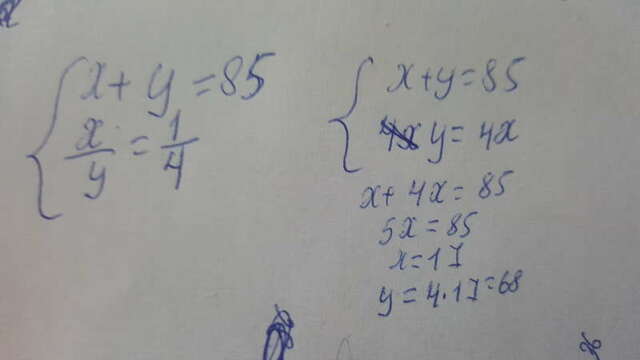 x + y = 85
x/y = 1/4
x+y=85
y = 4x
x+ 4x = 85
5x = 85
x=17
y = 4·17=68